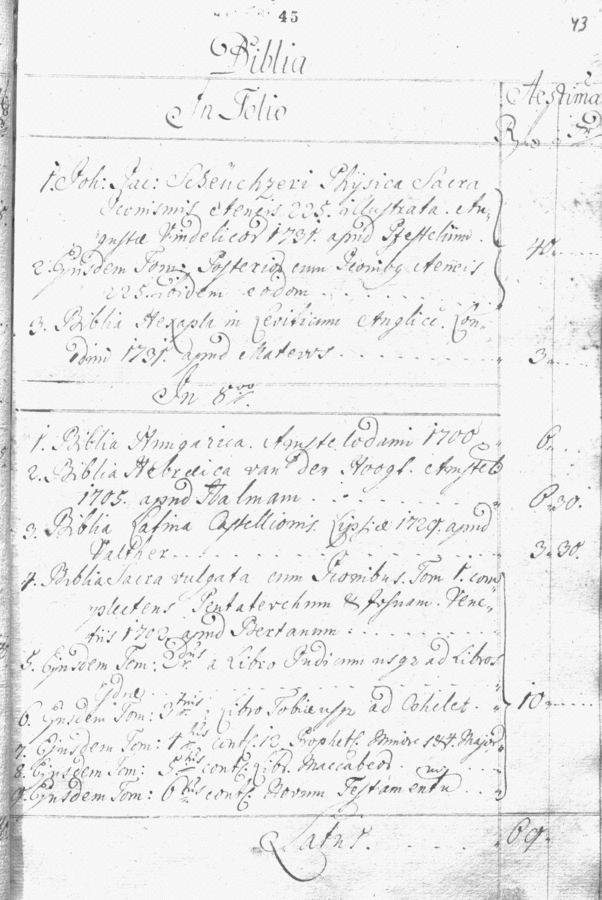 45
43
Biblia
In Folio
Aestima
R
1. Joh: Jac: Scheüchzeri Physica Sacra
Iconismis Aeneis 225. illustrata. Au„
gustæ Vindelicor 1731. apud Pfeffelium.
40
2. Ejusdem Tom: Posterior cum Iconibq Aeneis
225. ibidem eodem
3. Biblia Hexapla in Leviticum Anglice. Lon„
dini 1731. apud Matews
3
In 8vo
1. Biblia Hungarica. Amstelodami 1700
6
2. Biblia Hebræica van der Hoogt. Amstelo
1705. apud Halmam
6 30.
3. Biblia Latina Castellionis. Lipsiæ 1729. apud
Valther
3 30.
4. Biblia Sacra vulgata cum Iconibus. Tom 1. com
plectens Pentatevchum & Josuam. Vene„
tiis 1702. apud Bertanum
5. Ejusdem Tom: 2dus a Libro Judicum usqz ad Libros
Esdræ
6. Ejusdem Tom: 3tius Libro Tobiæ usqz ad Cohelet.
10
7. Ejusdem Tom: 4tus cont: 12 Prophets. Minore 1&4. Major
8. Ejusdem Tom: 5tus cont: Libr. Maccabeor.
9. Ejusdem Tom: 6tus cont: Novum Testamentum
Latus.
69